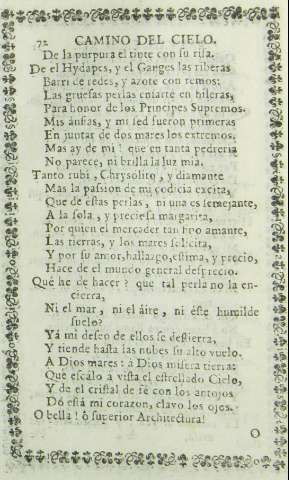 72 CAMINO DEL CIELO.
De la purpura el tinte con su risa.
De el Hydapes, y el Ganges las riberas
Barri de redes, y azotè con remos:
Las gruesas perlas ensartè en hileras,
Para honor de los Principes Supremos.
Mis ánsias, y mi sed fueron primeras
En juntar de dos mares los extremos.
Mas ay de mi! que en tanta pedreria
No parece, ni brilla la luz mia.
Tanto rubi, Chrysolito, y diamante
Mas la passion de mi codicia excita,
Que de estas perlas, ni una es semejante,
A la sola, y preciosa margarita,
Por quien el mercader tan fino amante,
Las tierras, y los mares solicita,
Y por su amor, hallazgo, estima, y precio,
Hace de el mundo general desprecio.
Què he de hacer? que tal perla no la en-
cierra,
Ni el mar, ni el áire, ni éste humilde
suelo?
Yá mi deseo de ellos se destierra,
Y tiende hasta las nubes su alto vuelo.
A Dios mares: á Dios misera tierra:
Que escálo á vista el estrellado Cielo,
Y de el cristal de fè con los antojos
Dó está mi corazon, clavo los ojos.
O bella! ò superior Architectura!
O